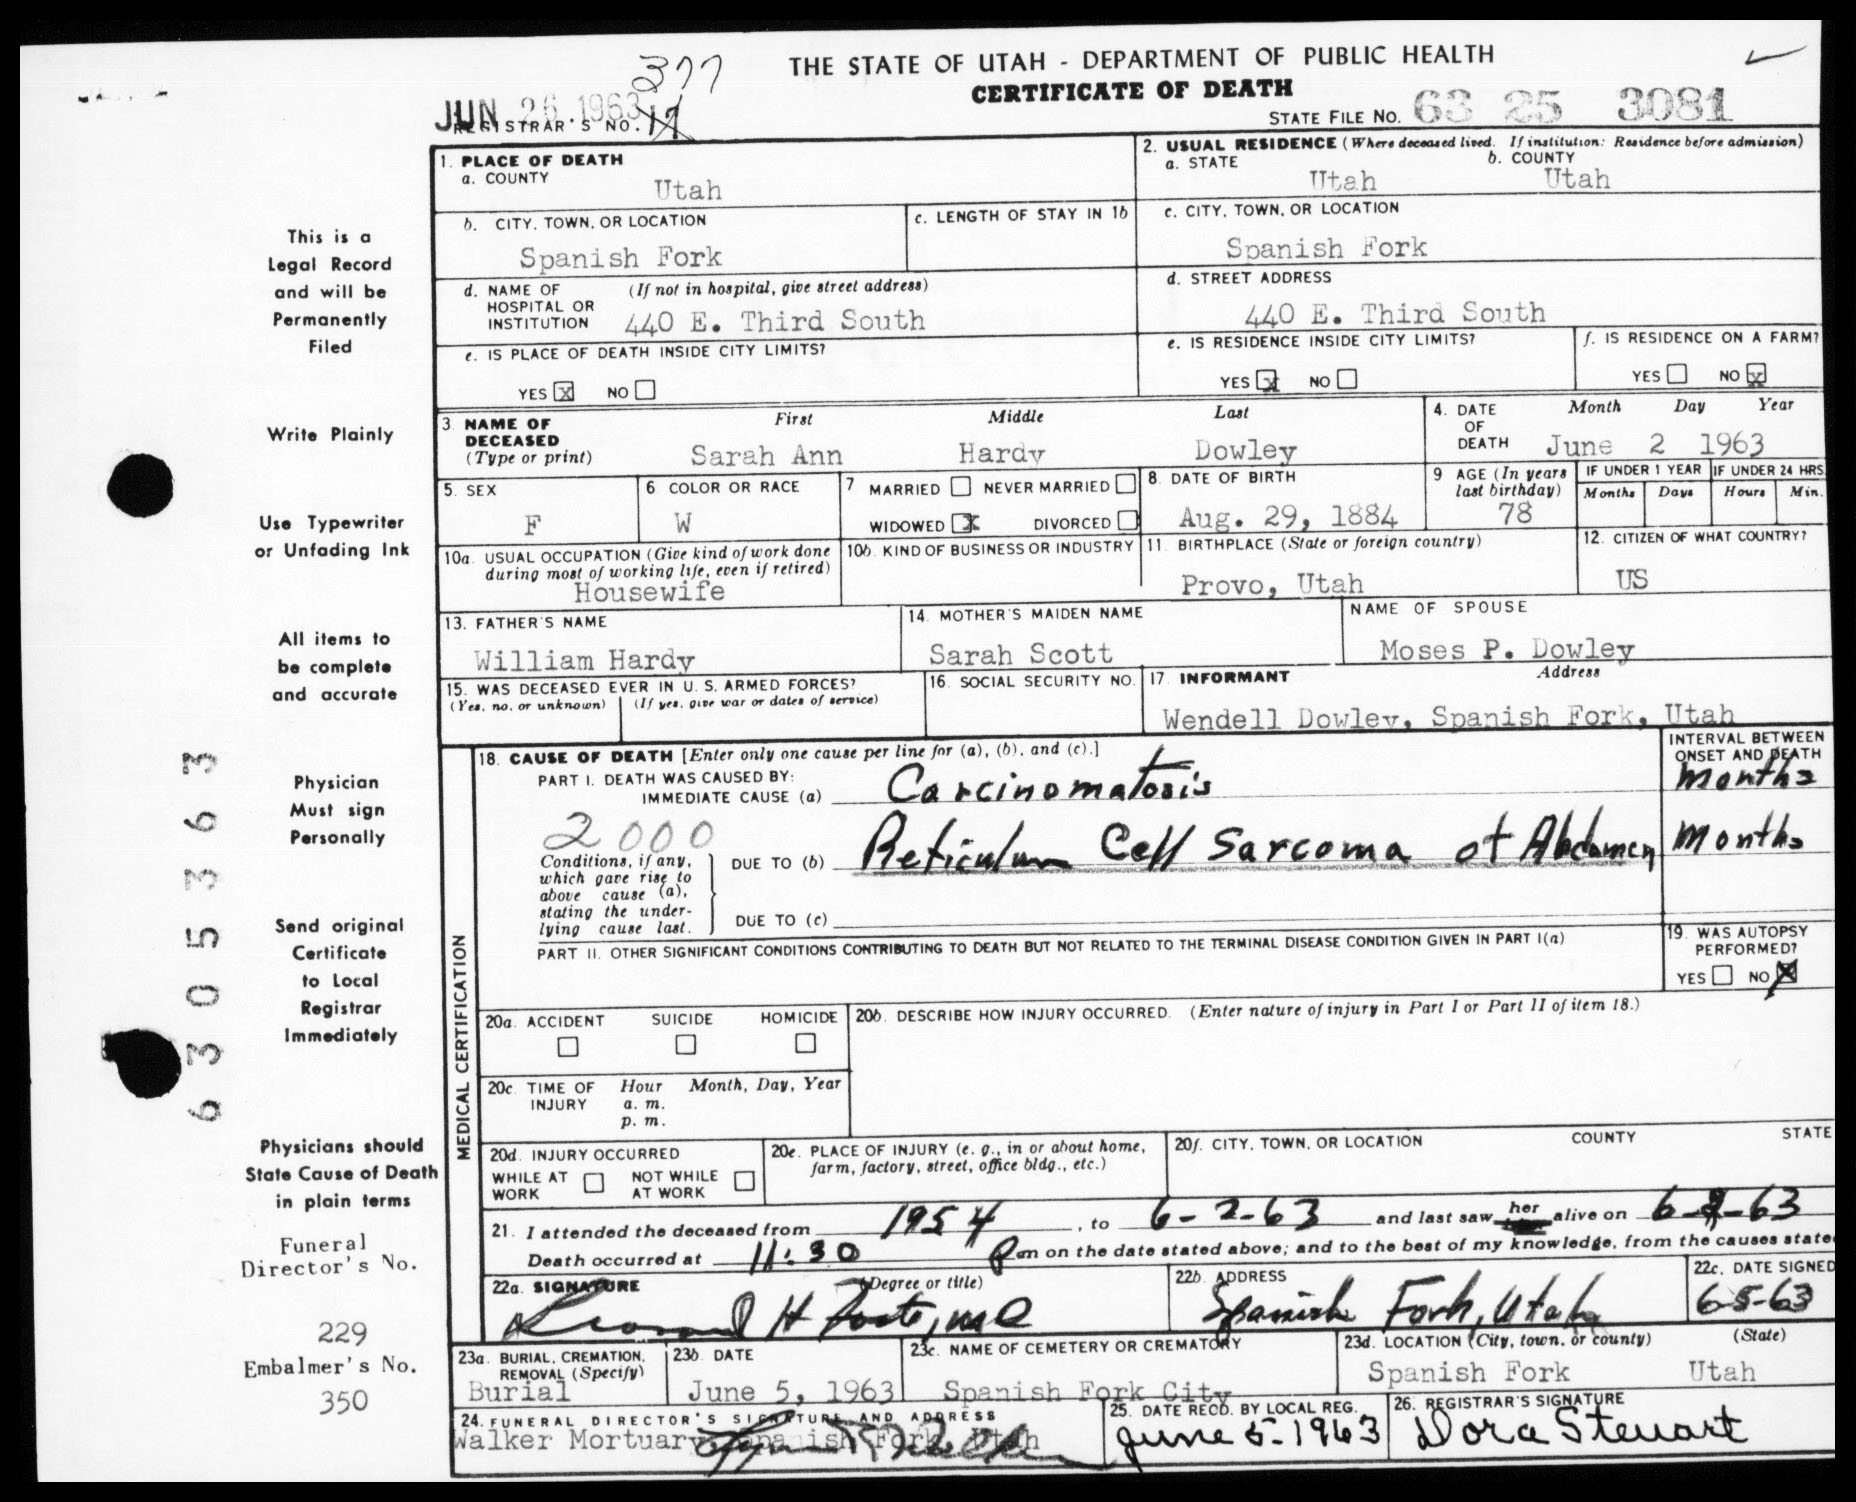 THE STATE OF UTAH - DEPARTMENT OF PUBLIC HEALTH
CERTIFICATE OF DEATH
JUN 26.1963
377
REGISTRAR'S NO. 17
STATE FILE NO. 63 25 3081
1. PLACE OF DEATH
a. COUNTY
Utah
2. USUAL RESIDENCE (Where deceased lived. If institution: Residence before admission)
a. STATE
Utah
b. COUNTY
Utah
b. CITY, TOWN, OR LOCATION
Spanish Fork
c. LENGTH OF STAY IN 1b
c. CITY, TOWN, OR LOCATION
Spanish Fork
d. NAME OF HOSPITAL OR INSTITUTION (If not in hospital, give street address)
440 E. Third South
d. STREET ADDRESS
440 E. Third South
e. IS PLACE OF DEATH INSIDE CITY LIMITS?
YES x NO
e. IS RESIDENCE INSIDE CITY LIMITS?
YES x NO
f. IS RESIDENCE ON A FARM?
YES NO x
3. NAME OF DECEASED (Type or print)
First Middle Last
Sarah Ann Hardy Dowley
4. DATE OF DEATH
Month Day Year
June 2 1963
5. SEX
F
6 COLOR OR RACE
W
7 MARRIED NEVER MARRIED
WIDOWED x DIVORCED
8. DATE OF BIRTH
Aug. 29, 1884
9 AGE (In years last birthday)
78
IF UNDER 1 YEAR
Months Days
IF UNDER 24 HRS.
Hours Min.
10a. USUAL OCCUPATION (Give kind of work done during most of working life, even if retired)
Housewife
10b. KIND OF BUSINESS OR INDUSTRY
11. BIRTHPLACE (State or foreign country)
Provo, Utah
12. CITIZEN OF WHAT COUNTRY?
US
13. FATHER'S NAME
William Hardy
14. MOTHER'S MAIDEN NAME
Sarah Scott
NAME OF SPOUSE
Moses P. Dowley
15. WAS DECEASED EVER IN U. S. ARMED FORCES?
(Yes, no, or unknown) (If yes, give war or dates of service)
16. SOCIAL SECURITY NO.
17. INFORMANT Address
Wendell Dowley, Spanish Fork, Utah
MEDICAL CERTIFICATION
18. CAUSE OF DEATH [Enter only one cause per line for (a), (b), and (c).]
INTERVAL BETWEEN ONSET AND DEATH
PART I. DEATH WAS CAUSED BY:
IMMEDIATE CAUSE (a) Carcinomatosis
Months
2000
Conditions, if any, which gave rise to above cause (a), stating the underlying cause last.
DUE TO (b) Reticulum Cell Sarcoma of Abdomen
Months
DUE TO (c)
PART II. OTHER SIGNIFICANT CONDITIONS CONTRIBUTING TO DEATH BUT NOT RELATED TO THE TERMINAL DISEASE CONDITION GIVEN IN PART I(a)
19. WAS AUTOPSY PERFORMED?
YES NO X
20a. ACCIDENT SUICIDE HOMICIDE
20b. DESCRIBE HOW INJURY OCCURRED. (Enter nature of injury in Part I or Part II of item 18.)
20c. TIME OF INJURY Hour Month, Day, Year
a. m.
p. m.
20d. INJURY OCCURRED
WHILE AT WORK NOT WHILE AT WORK
20e. PLACE OF INJURY (e. g., in or about home, farm, factory, street, office bldg., etc.)
20f. CITY, TOWN, OR LOCATION COUNTY STATE
21. I attended the deceased from 1954, to 6-2-63 and last saw her alive on 6-2-63
Death occurred at 11:30 P m on the date stated above; and to the best of my knowledge, from the causes state
22a. SIGNATURE (Degree or title)
H Foote, MD
22b. ADDRESS
Spanish Fork, Utah
22c. DATE SIGNED
6-5-63
23a. BURIAL, CREMATION, REMOVAL (Specify)
Burial
23b. DATE
June 5, 1963
23c. NAME OF CEMETERY OR CREMATORY
Spanish Fork City
23d. LOCATION (City, town, or county) (State)
Spanish Fork Utah
24. FUNERAL DIRECTOR'S SIGNATURE AND ADDRESS
Walker Mortuary Spanish Fork, Utah
25. DATE RECD. BY LOCAL REG.
June 5-1963
26. REGISTRAR'S SIGNATURE
Dora Steuart
This is a
Legal Record
and will be
Permanently
Filed
Write Plainly
Use Typewriter
or Unfading Ink
All items to
be complete
and accurate
Physician
Must sign
Personally
Send original
Certificate
to Local
Registrar
Immediately
Physicians should
State Cause of Death
in plain terms
Funeral
Director's No.
229
Embalmer's No.
350
63053363